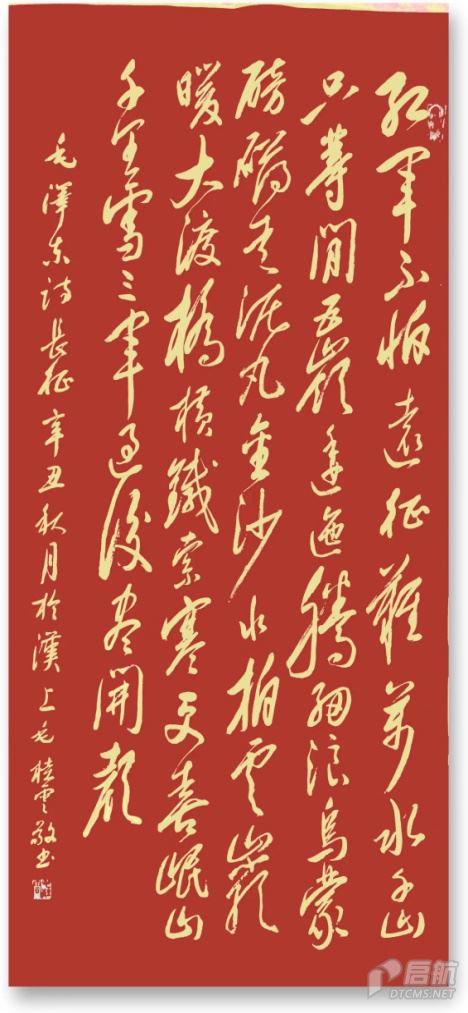 红军不怕遠征難萬水千山
只等閒五嶺逶迤騰細浪烏蒙
磅礴走泥丸金沙水拍雲崖
暖大渡橋橫鐵索寒更喜岷山
千里雪三軍過後盡開顏
毛澤东詩長征辛丑秋月於漢上毛桂雲敬书
启航
DTCMS.NET